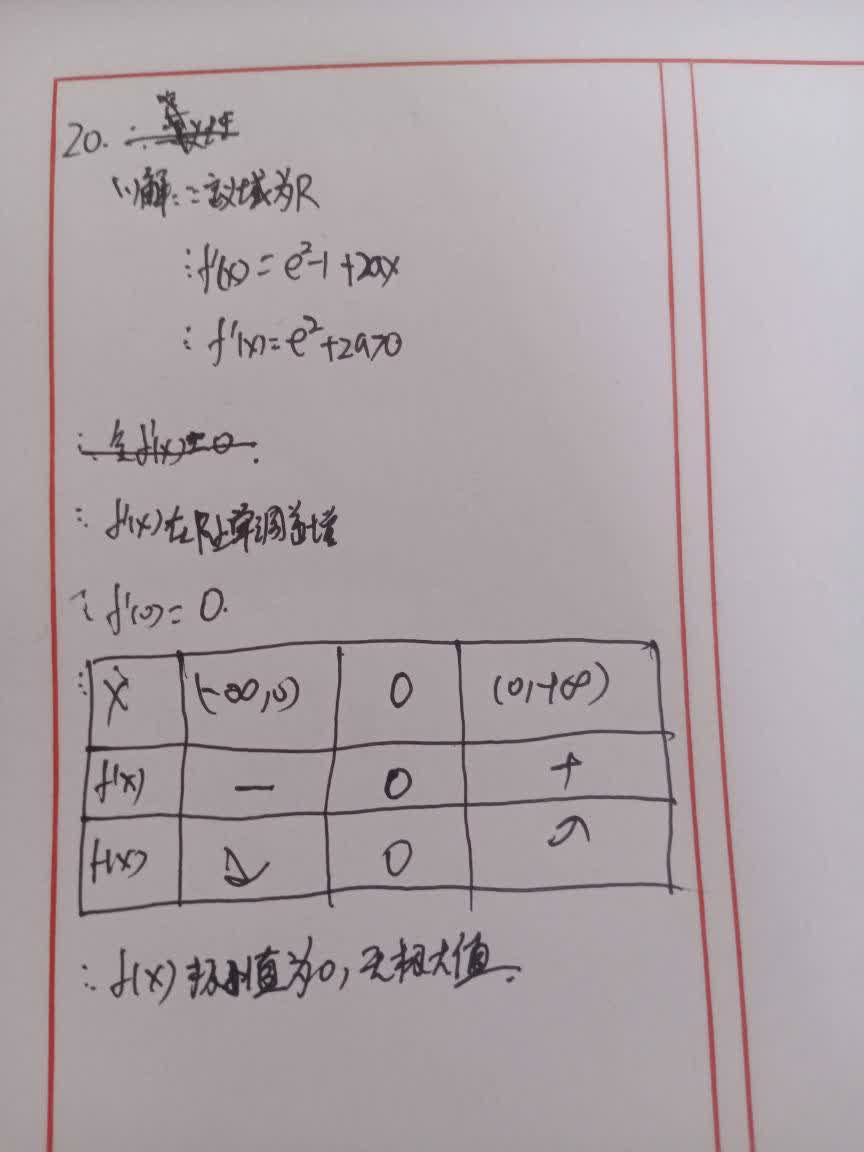 20.
(1)解:∵定义域为R
∴f'(x)=e²-1+2ax
∴f''(x)=e²+2a>0
∴令f'(x)=0.
∴f'(x)在R上单调递增
∵f'(0)=0.
∴ x (-∞,0) 0 (0,+∞)
f'(x) — 0 +
f(x) ↘ 0 ↗
∴f(x)极小值为0,无极大值.